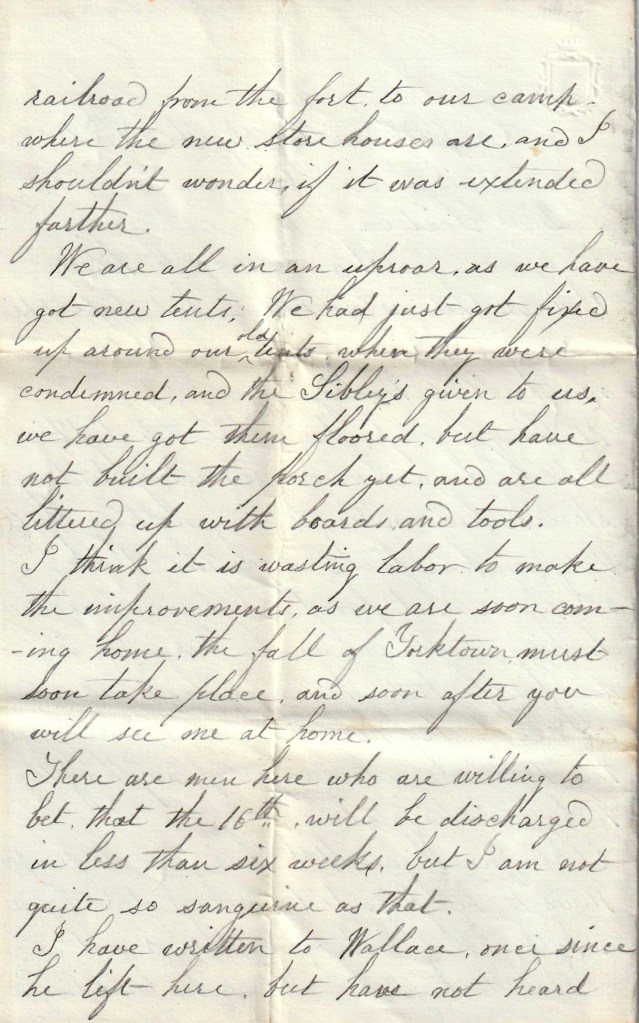 railroad from the fort. to our camp.
where the new store houses are, and I
shouldn't wonder, if it was extended
farther.
We are all in an uproar, as we have
got new tents, We had just got fixed
up around our old tents, when they were
condemned, and the Sibley's given to us,
we have got them floored, but have
not built the porch yet, and are all
littered up with boards and tools.
I think it is wasting labor to make
the improvements, as we are soon com-
-ing home. the fall of Yorktown must
soon take place, and soon after you
will see me at home.
There are men here who are willing to
bet, that the 16th, will be discharged
in less than six weeks, but I am not
quite so sanguine as that.
I have written to Wallace, once since
he left here, but have not heard